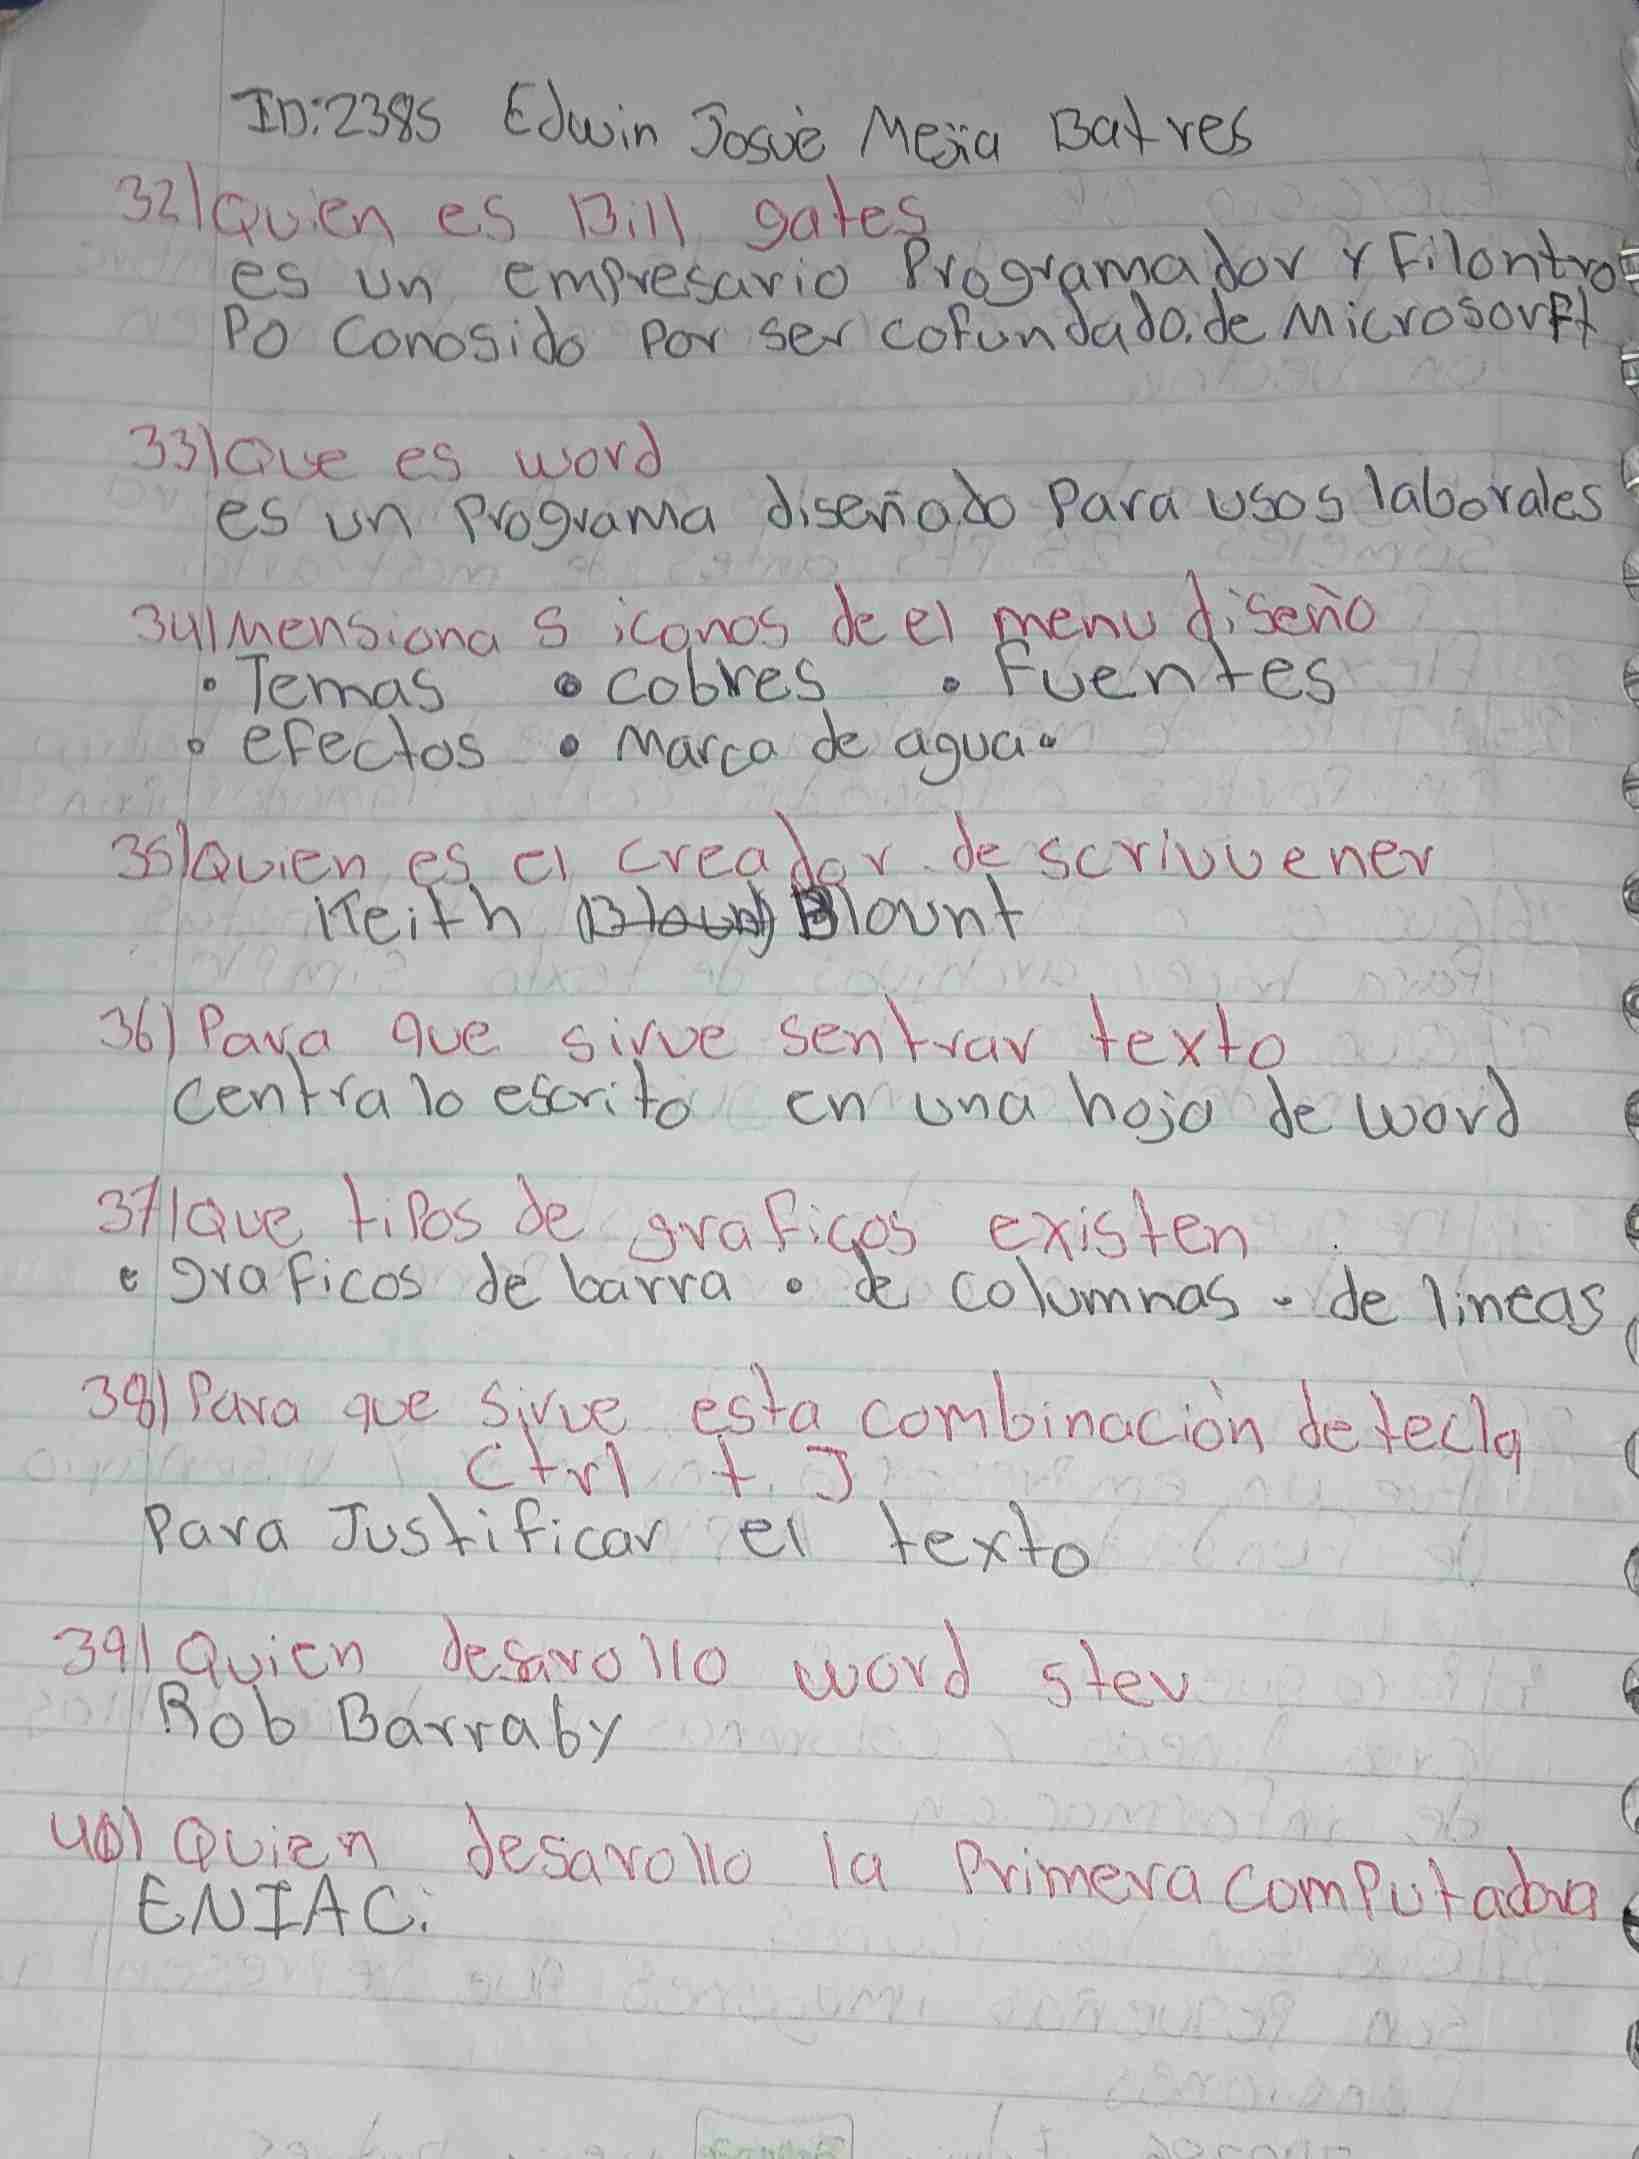 ID:2385 Edwin Josué Mejia Batres
32) Quien es Bill gates
es un empresario Programador y Filontro
Po conosido por ser cofundado. de Microsorft
33) Que es word
es un programa diseñado para usos laborales
34) Mensiona 5 iconos de el menu diseño
• Temas • cobres • Fuentes
• efectos • Marca de agua.
35) Quien es el creador de scrivvener
Keith Blount Blount
36) Para que sirve sentrar texto
centra lo escrito en una hoja de word
37) Que tipos de graficos existen
• graficos de barra • de columnas - de lineas
38) Para que sirve esta combinación de tecla
Ctrl + J
Para Justificar el texto
39) Quien desarrollo word stev
Rob Barraby
40) Quien desarollo la Primera computadora
ENIAC.